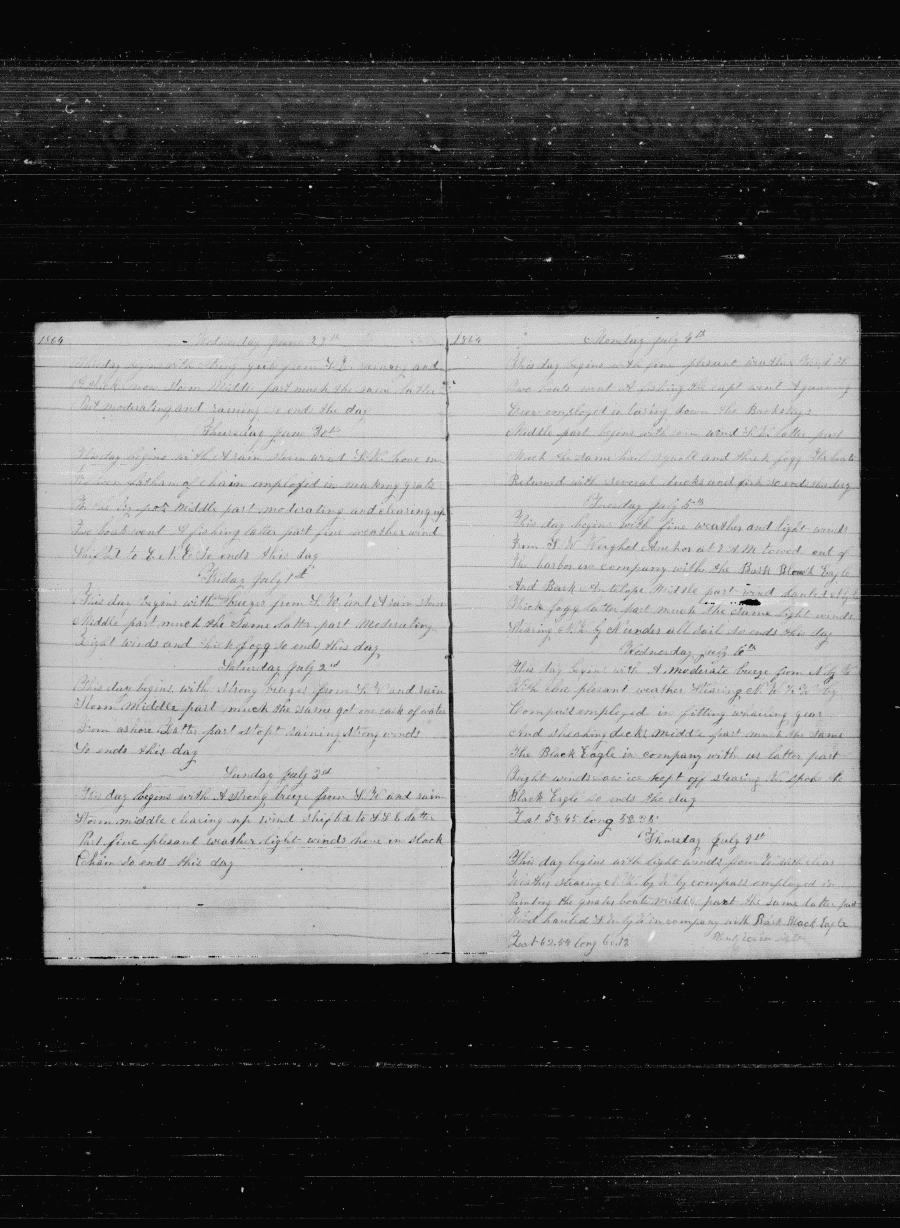 1864 Wednesday June 29th
This day begins with strong gale from S.E. raining and
thick snow storm Middle part much the same latter
Part moderating and raining so ends the day
Thursday June 30th
This day begins with A rain storm wind S.W. hove in
fathom of chain employed in making grate
Middle part moderating and clearing up
Two boats went A fishing latter part fine weather wind
to E. N. E So ends this day
Friday July 1st
This day begins with breezes from S. W. and A rain storm
Middle part much the same latter part Moderating
Light winds and thick fogg so ends this day
Saturday July 2nd
This day begins with strong breezes from S. W and rain
Storm Middle part much the same got one cask of water
From ashore Latter part stopt raining strong winds
So ends this day
Sunday July 3rd
This day begins with A strong breeze from S. W and rain
Storm middle clearing up wind shifted to S S E latter
Part fine plesent weather light winds hove in slack
Chain so ends this day
1864 Monday July 4th
This day begins with fine plesent weather wind
Two boats went A fishing the capt went A gunning
Crew employed in taring down the Backstays
Middle part begins with wind latter part
Much the same hail squall and thick fogg The boats
Returned with several ducks and fish so ends the day
Tuesday July 5th
This day begins with fine weather and light winds
From N W Weighed Anchor at 2 A M towed out of
The harbor in company with the Bark Black Eagle
And Bark Antelope Middle part wind
Thick fogg latter part much the same light winds
Stearing N. E by N under all sail so ends this day
Wednesday July 6th
This day begins with A moderate breeze from N by W
With clear plesant weather Stearing N. W by
Compas employed in fitting whaling gear
And speaking decks middle part much the same
The Black Eagle in company with us latter part
Light winds saw ice kept off stearing spoke the
Black Eagle so ends the day
Lat 58.45 long 58.28
Thursday July 7th
This day begins with light winds from W. with clear
Weather stearing N. W. by W by compass employed in
Painting the quater boats middle part the same latter part
Wind hauled in company with Bark Black Eagle
Lat 62.54 long 60.12